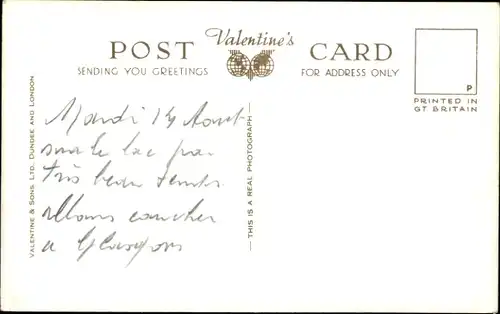 Valentine's
POST CARD
SENDING YOU GREETINGS
FOR ADDRESS ONLY
P
PRINTED IN
GT BRITAIN
VALENTINE & SONS, LTD. DUNDEE AND LONDON
— THIS IS A REAL PHOTOGRAPH —
Mardi 14 Aout
sur le lac par
très beau temps
allons coucher
a Glasgow